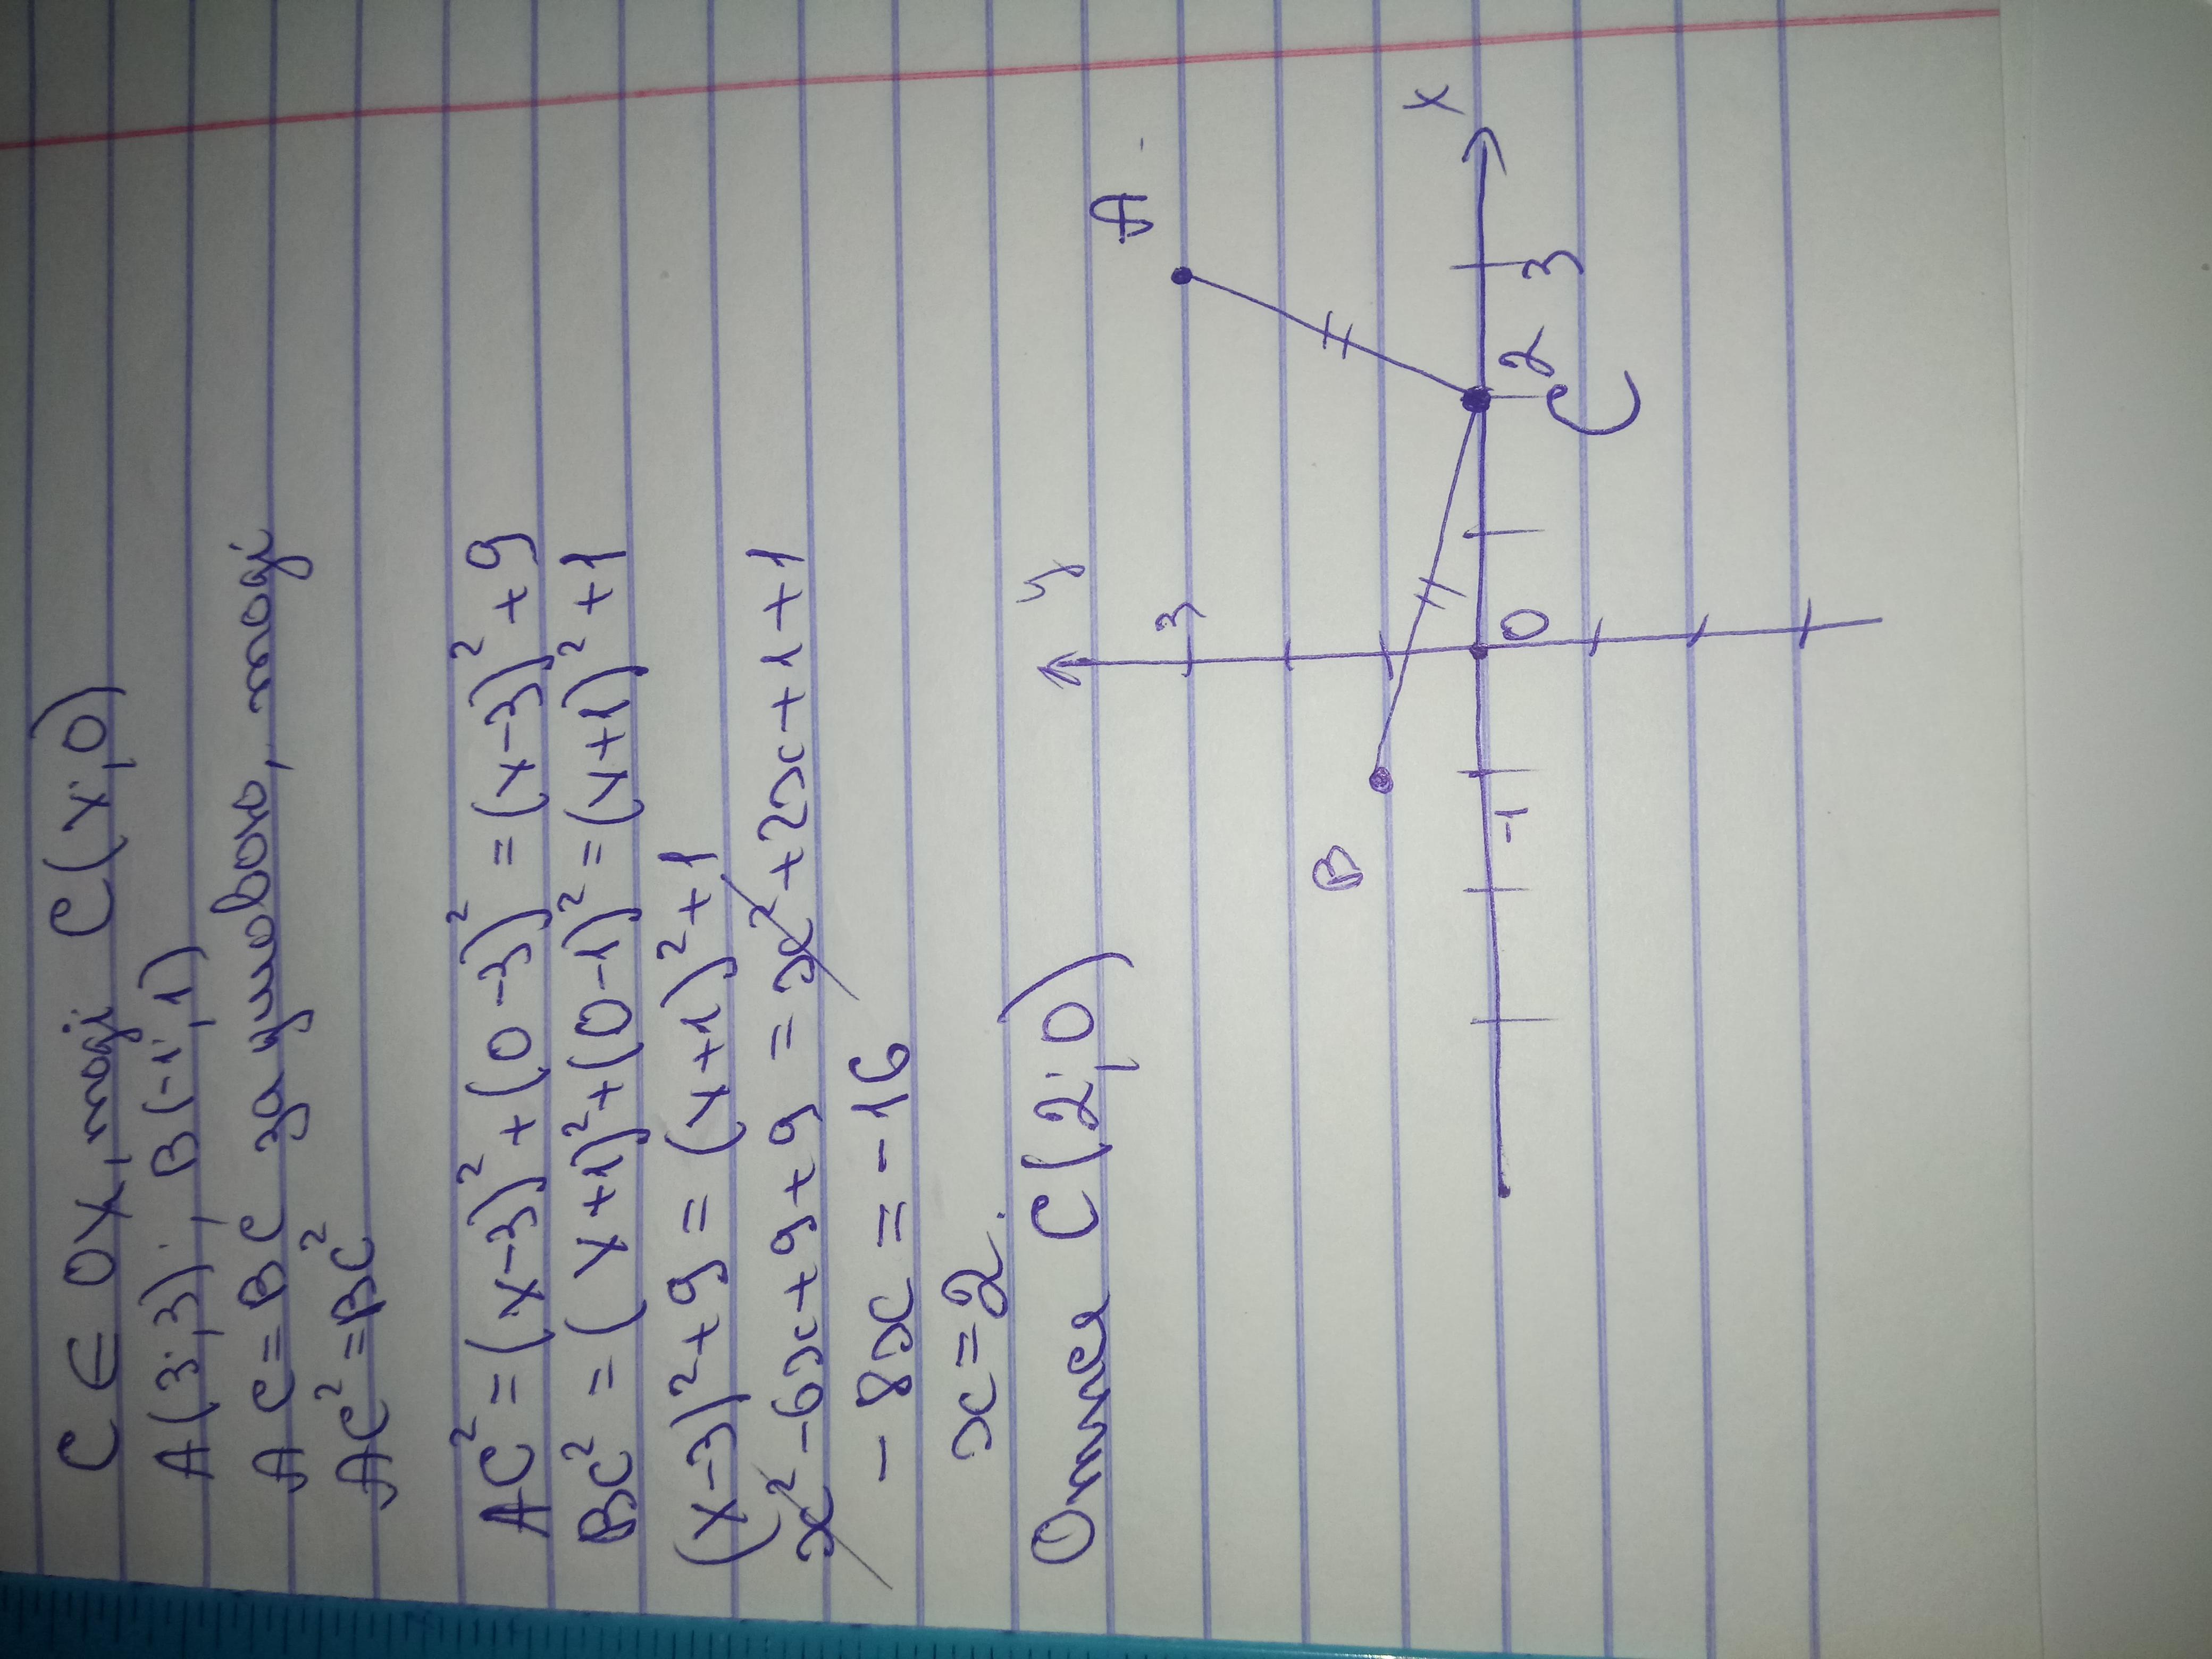 C ∈ OX, тоді C(x; 0)
A(3; 3), B(-1; 1)
AC = BC за умовою, тоді
AC² = BC²
AC² = (x-3)² + (0-3)² = (x-3)² + 9
BC² = (x+1)² + (0-1)² = (x+1)² + 1
(x-3)² + 9 = (x+1)² + 1
x² - 6x + 9 + 9 = x² + 2x + 1 + 1
- 8x = - 16
x = 2.
Отже C(2; 0)
y
3
A
x
B
-1
0
2
3
C